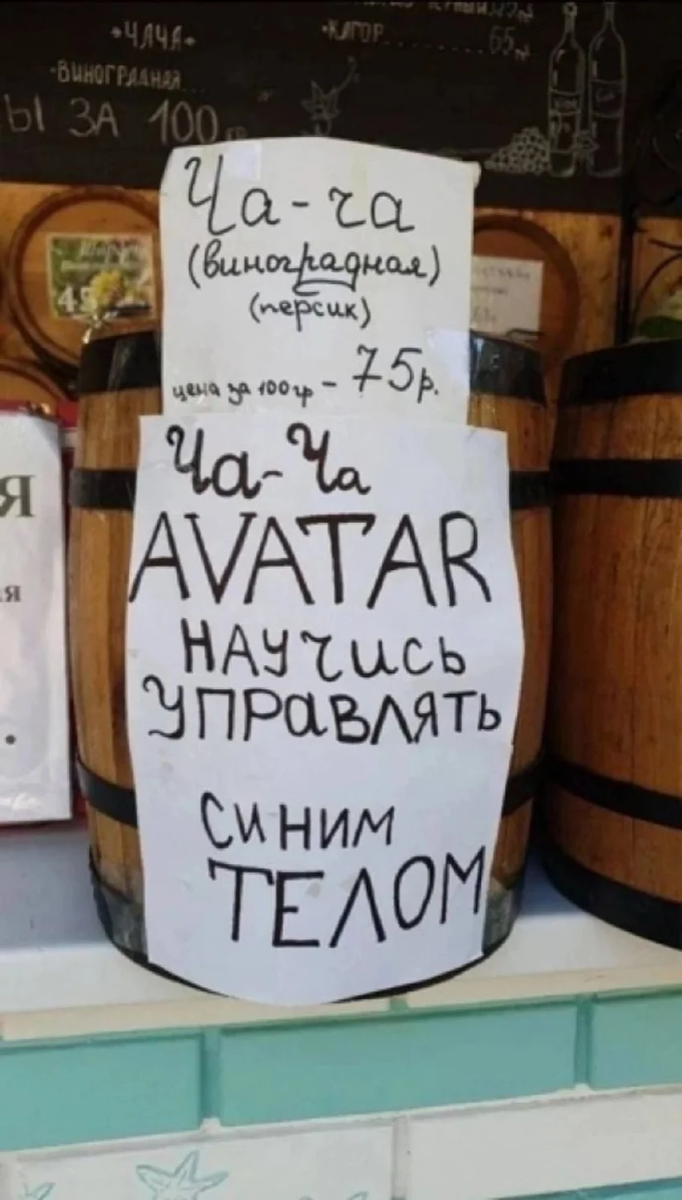 •ЧАЧА•
•ВИНОГРАДНАЯ
•КАГОР
65
Ы ЗА 100
Ча-ча
(виноградная)
(персик)
цена за 100гр - 75р.
Ча-Ча
AVATAR
НАУЧИСЬ
УПРАВЛЯТЬ
СИНИМ
ТЕЛОМ
Я
я